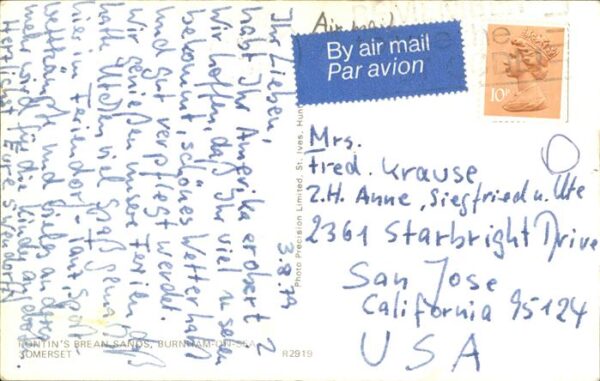 Air mail
By air mail
Par avion
10P
Mrs.
Fred. Krause
z.H. Anne, Siegfried u. Ute
2361 Starbright Drive
San Jose
California 95124
USA
3.8.79
Ihr Lieben,
habt Ihr Amerika erobert?
Wir hoffen, daß Ihr viel zu sehen
bekommt, schönes Wetter habt
und gut verpflegt werdet.
Wir genießen unsere Ferien,
hatten viel Spaß
hier im Feriendorf - Tanz, Sport-
wettkämpfe und vieles andere
mehr wird für die Kinder
Herzlichst Eure
Photo Precision Limited, St. Ives, Hunt
PONTIN'S BREAN SANDS, BURNHAM-ON-SEA,
SOMERSET
R2919